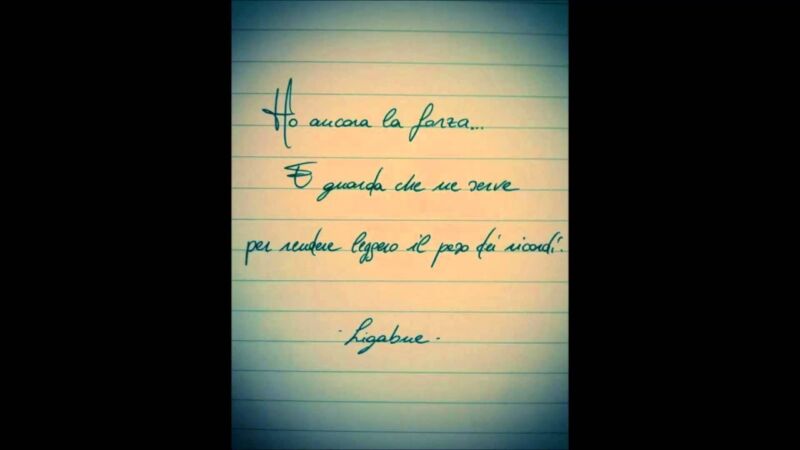 Ho ancora la forza...
E guarda che ne serve
per rendere leggero il peso dei ricordi.
.Ligabue.